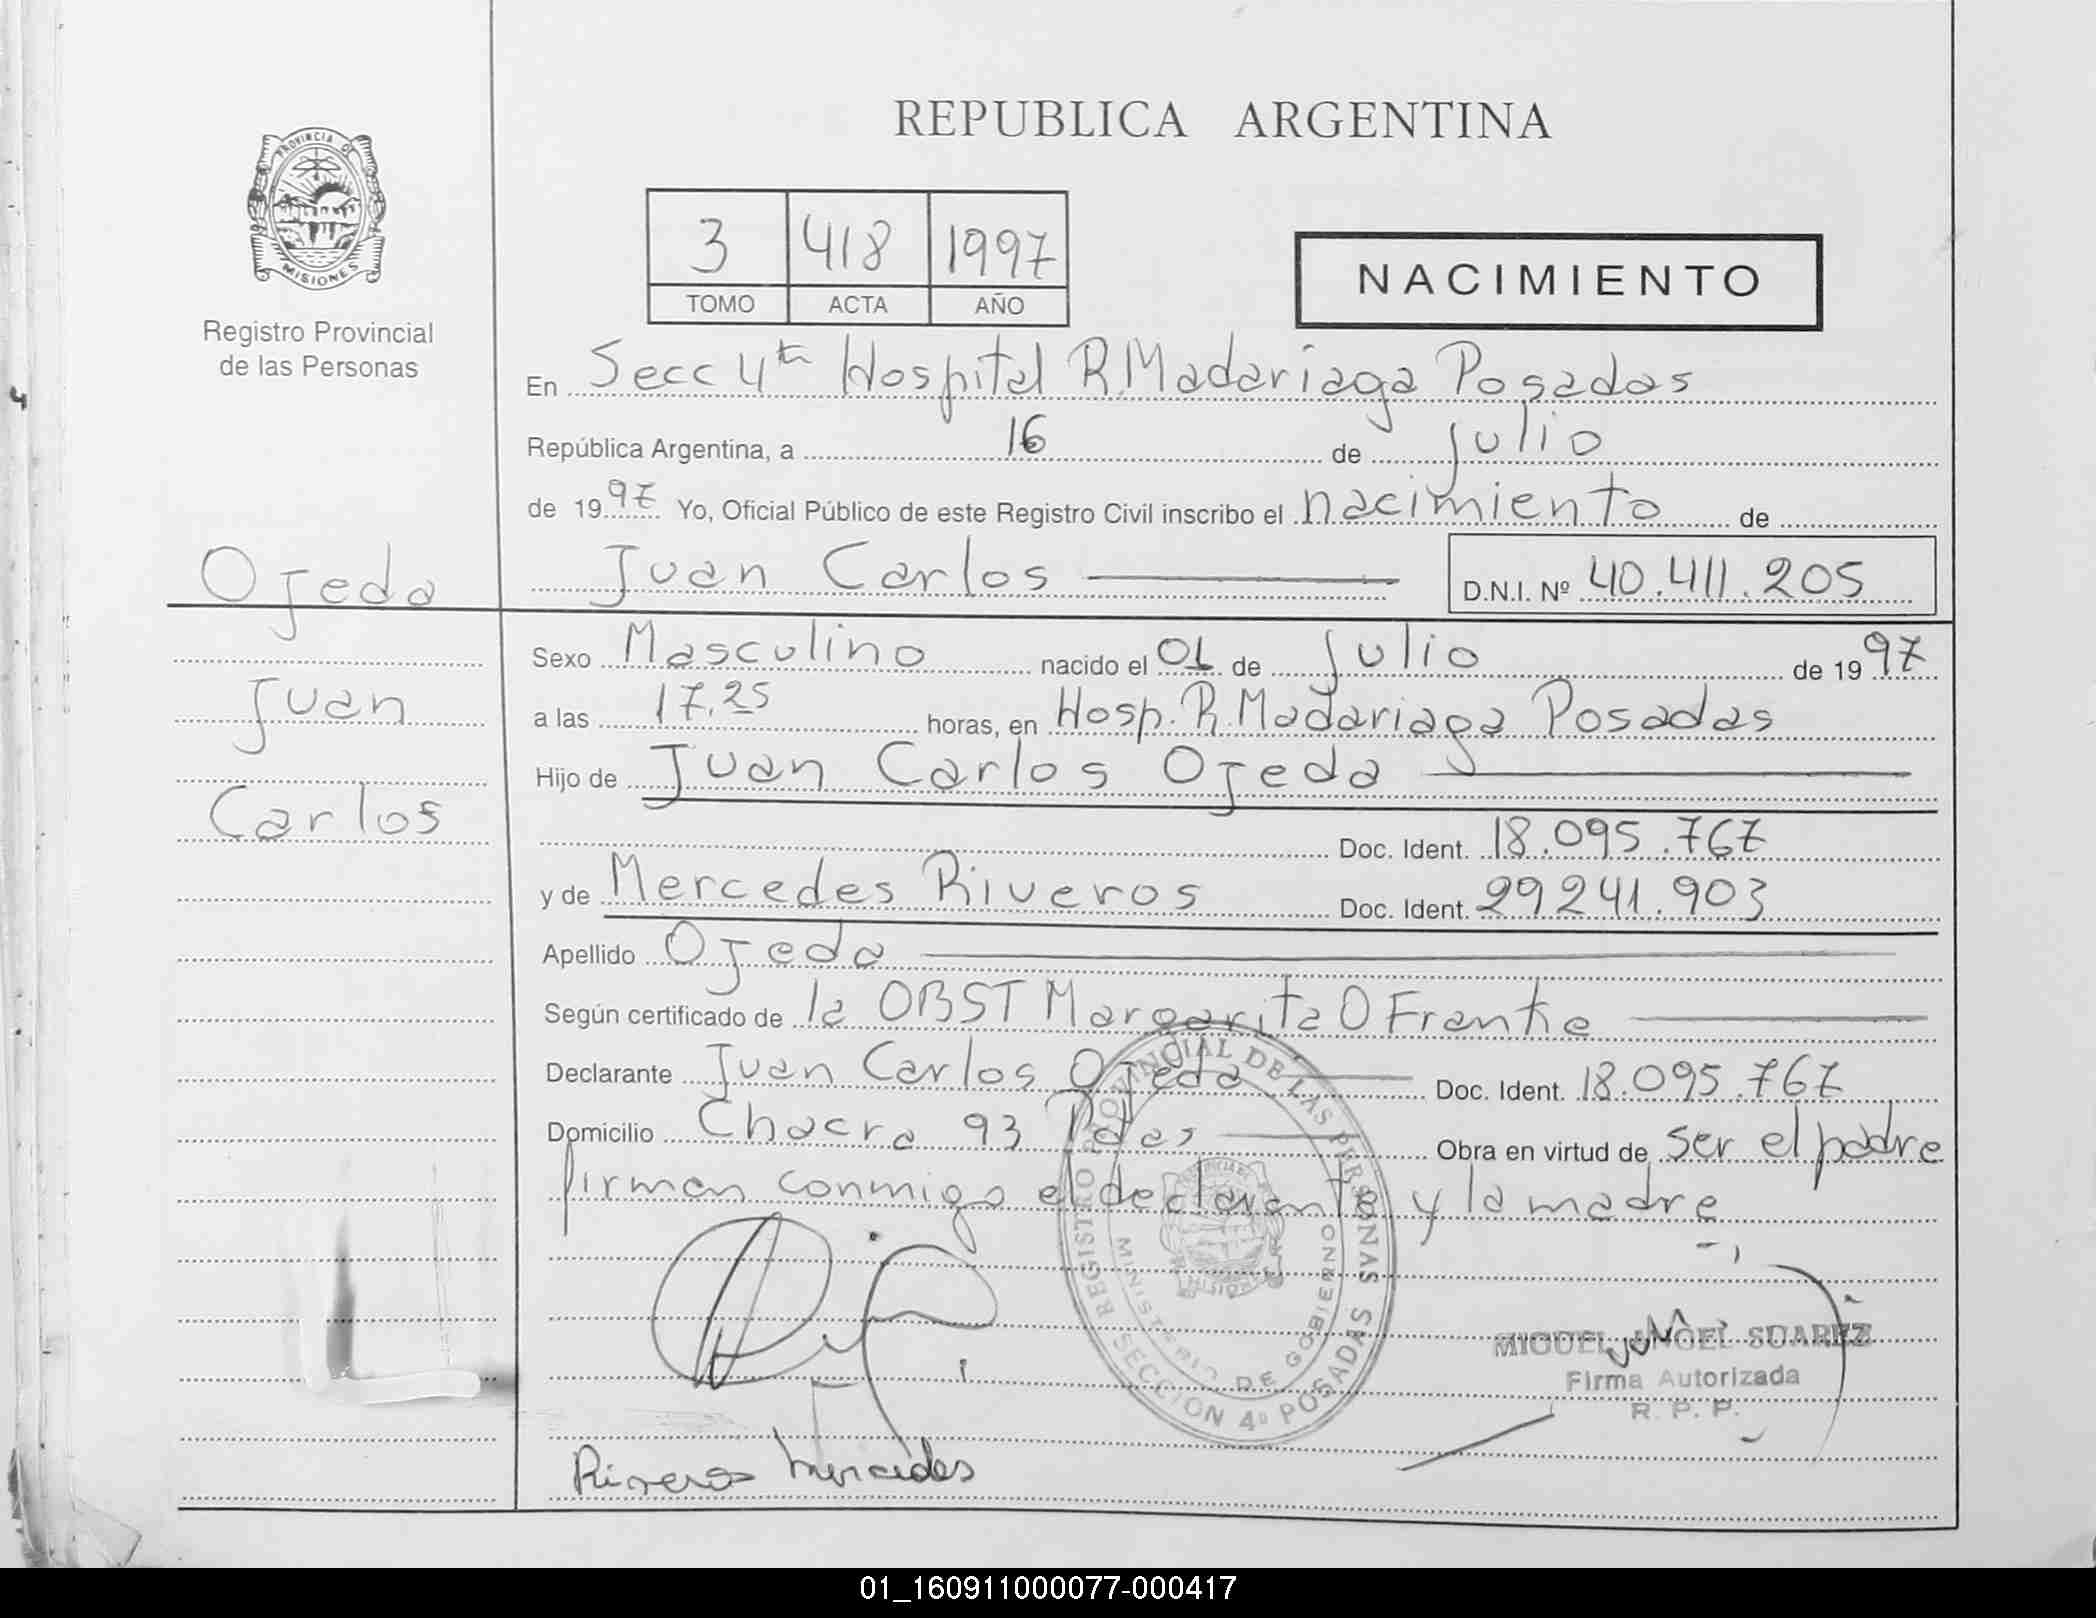 PROVINCIA D
MISIONES
Registro Provincial
de las Personas
Ojeda
Juan
Carlos
REPUBLICA ARGENTINA
3 418 1997
TOMO ACTA AÑO
NACIMIENTO
En Secc 4ta Hospital R. Madariaga Posadas
República Argentina, a 16 de julio
de 1997 Yo, Oficial Público de este Registro Civil inscribo el nacimiento de
Juan Carlos D.N.I. Nº 40.411.205
Sexo Masculino nacido el 01 de julio de 1997
a las 17.25 horas, en Hosp. R. Madariaga Posadas
Hijo de Juan Carlos Ojeda
Doc. Ident. 18.095.767
y de Mercedes Riveros Doc. Ident. 29241.903
Apellido Ojeda
Según certificado de la OBST Margarita O Franke
Declarante Juan Carlos Ojeda Doc. Ident. 18.095.767
Domicilio Chacra 93 Pdas Obra en virtud de ser el padre
firman conmigo el declarante y la madre
REGISTRO PROVINCIAL DE LAS PERSONAS
MINISTERIO DE GOBIERNO
SECCION 4ª POSADAS
MIGUEL ANGEL SUAREZ
Firma Autorizada
R. P. P.
Riveros Mercedes
01_160911000077-000417